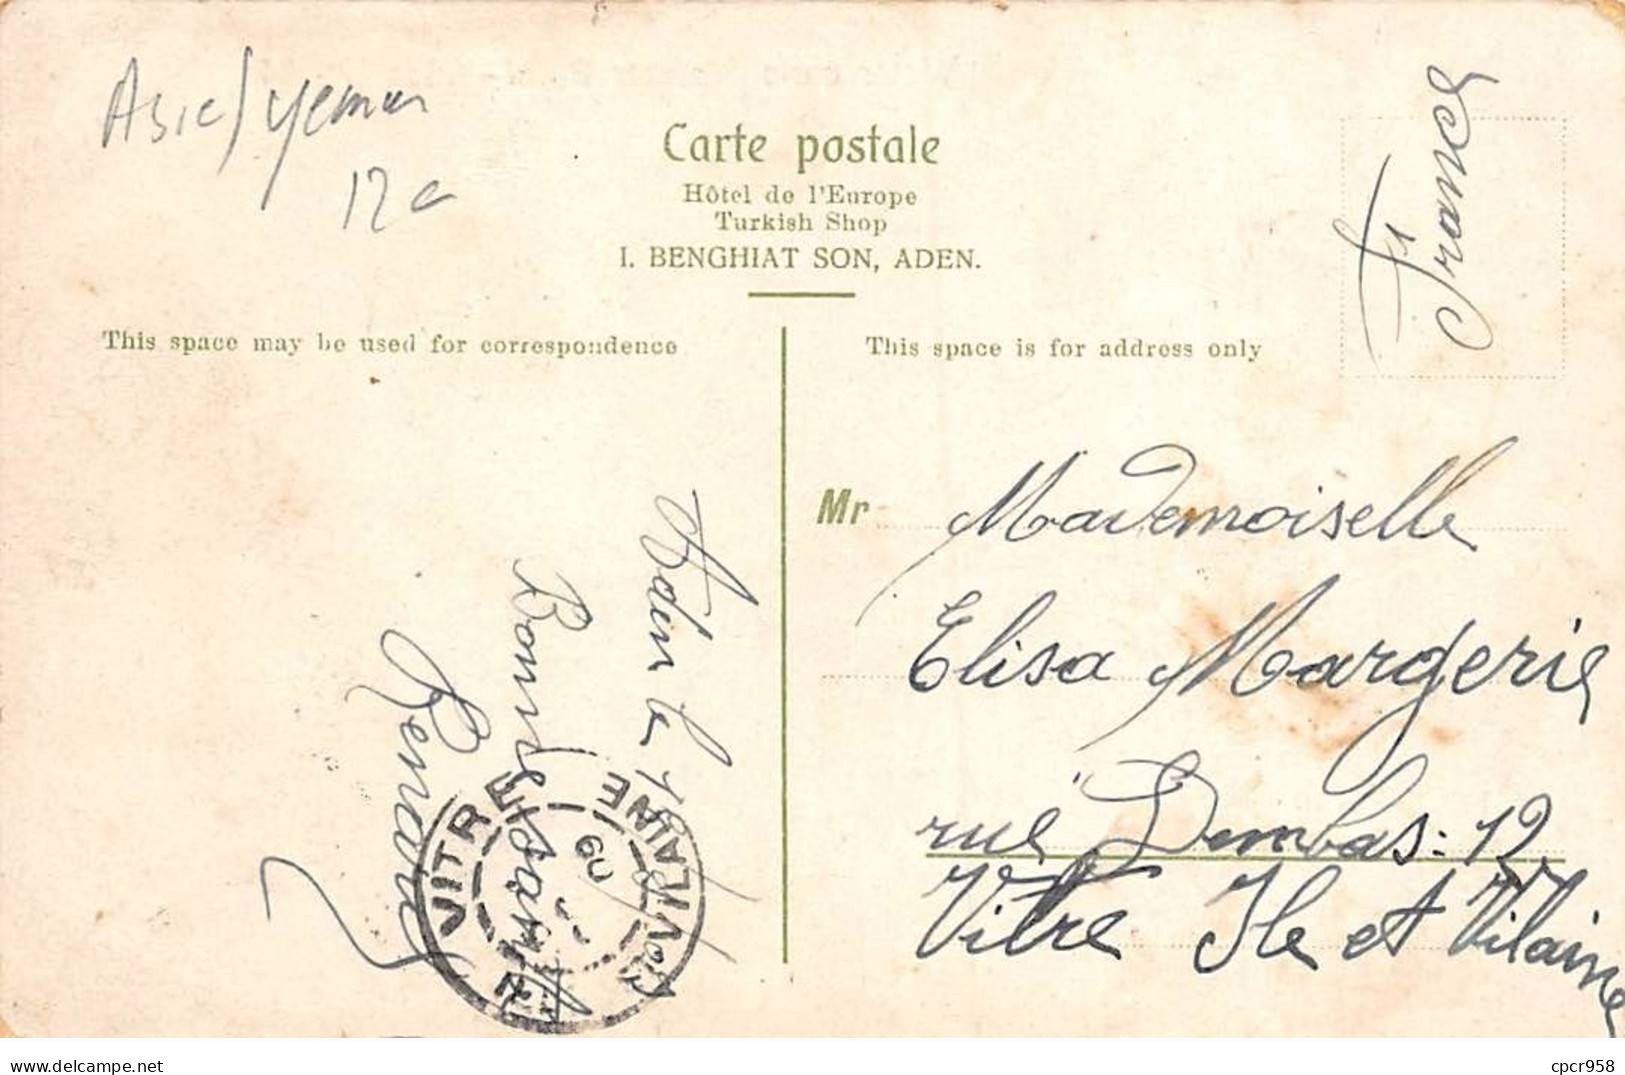 Asie/yemen
12 c
Carte postale
Hôtel de l'Europe
Turkish Shop
I. BENGHIAT SON, ADEN.
France
This space may be used for correspondence
This space is for address only
Aden le
Bonne
Renard
VITRE
VILAINE
09
Mr Mademoiselle
Elisa Margerie
rue 12
Vitre Ile et Vilaine
delcampe.net
cpcr958